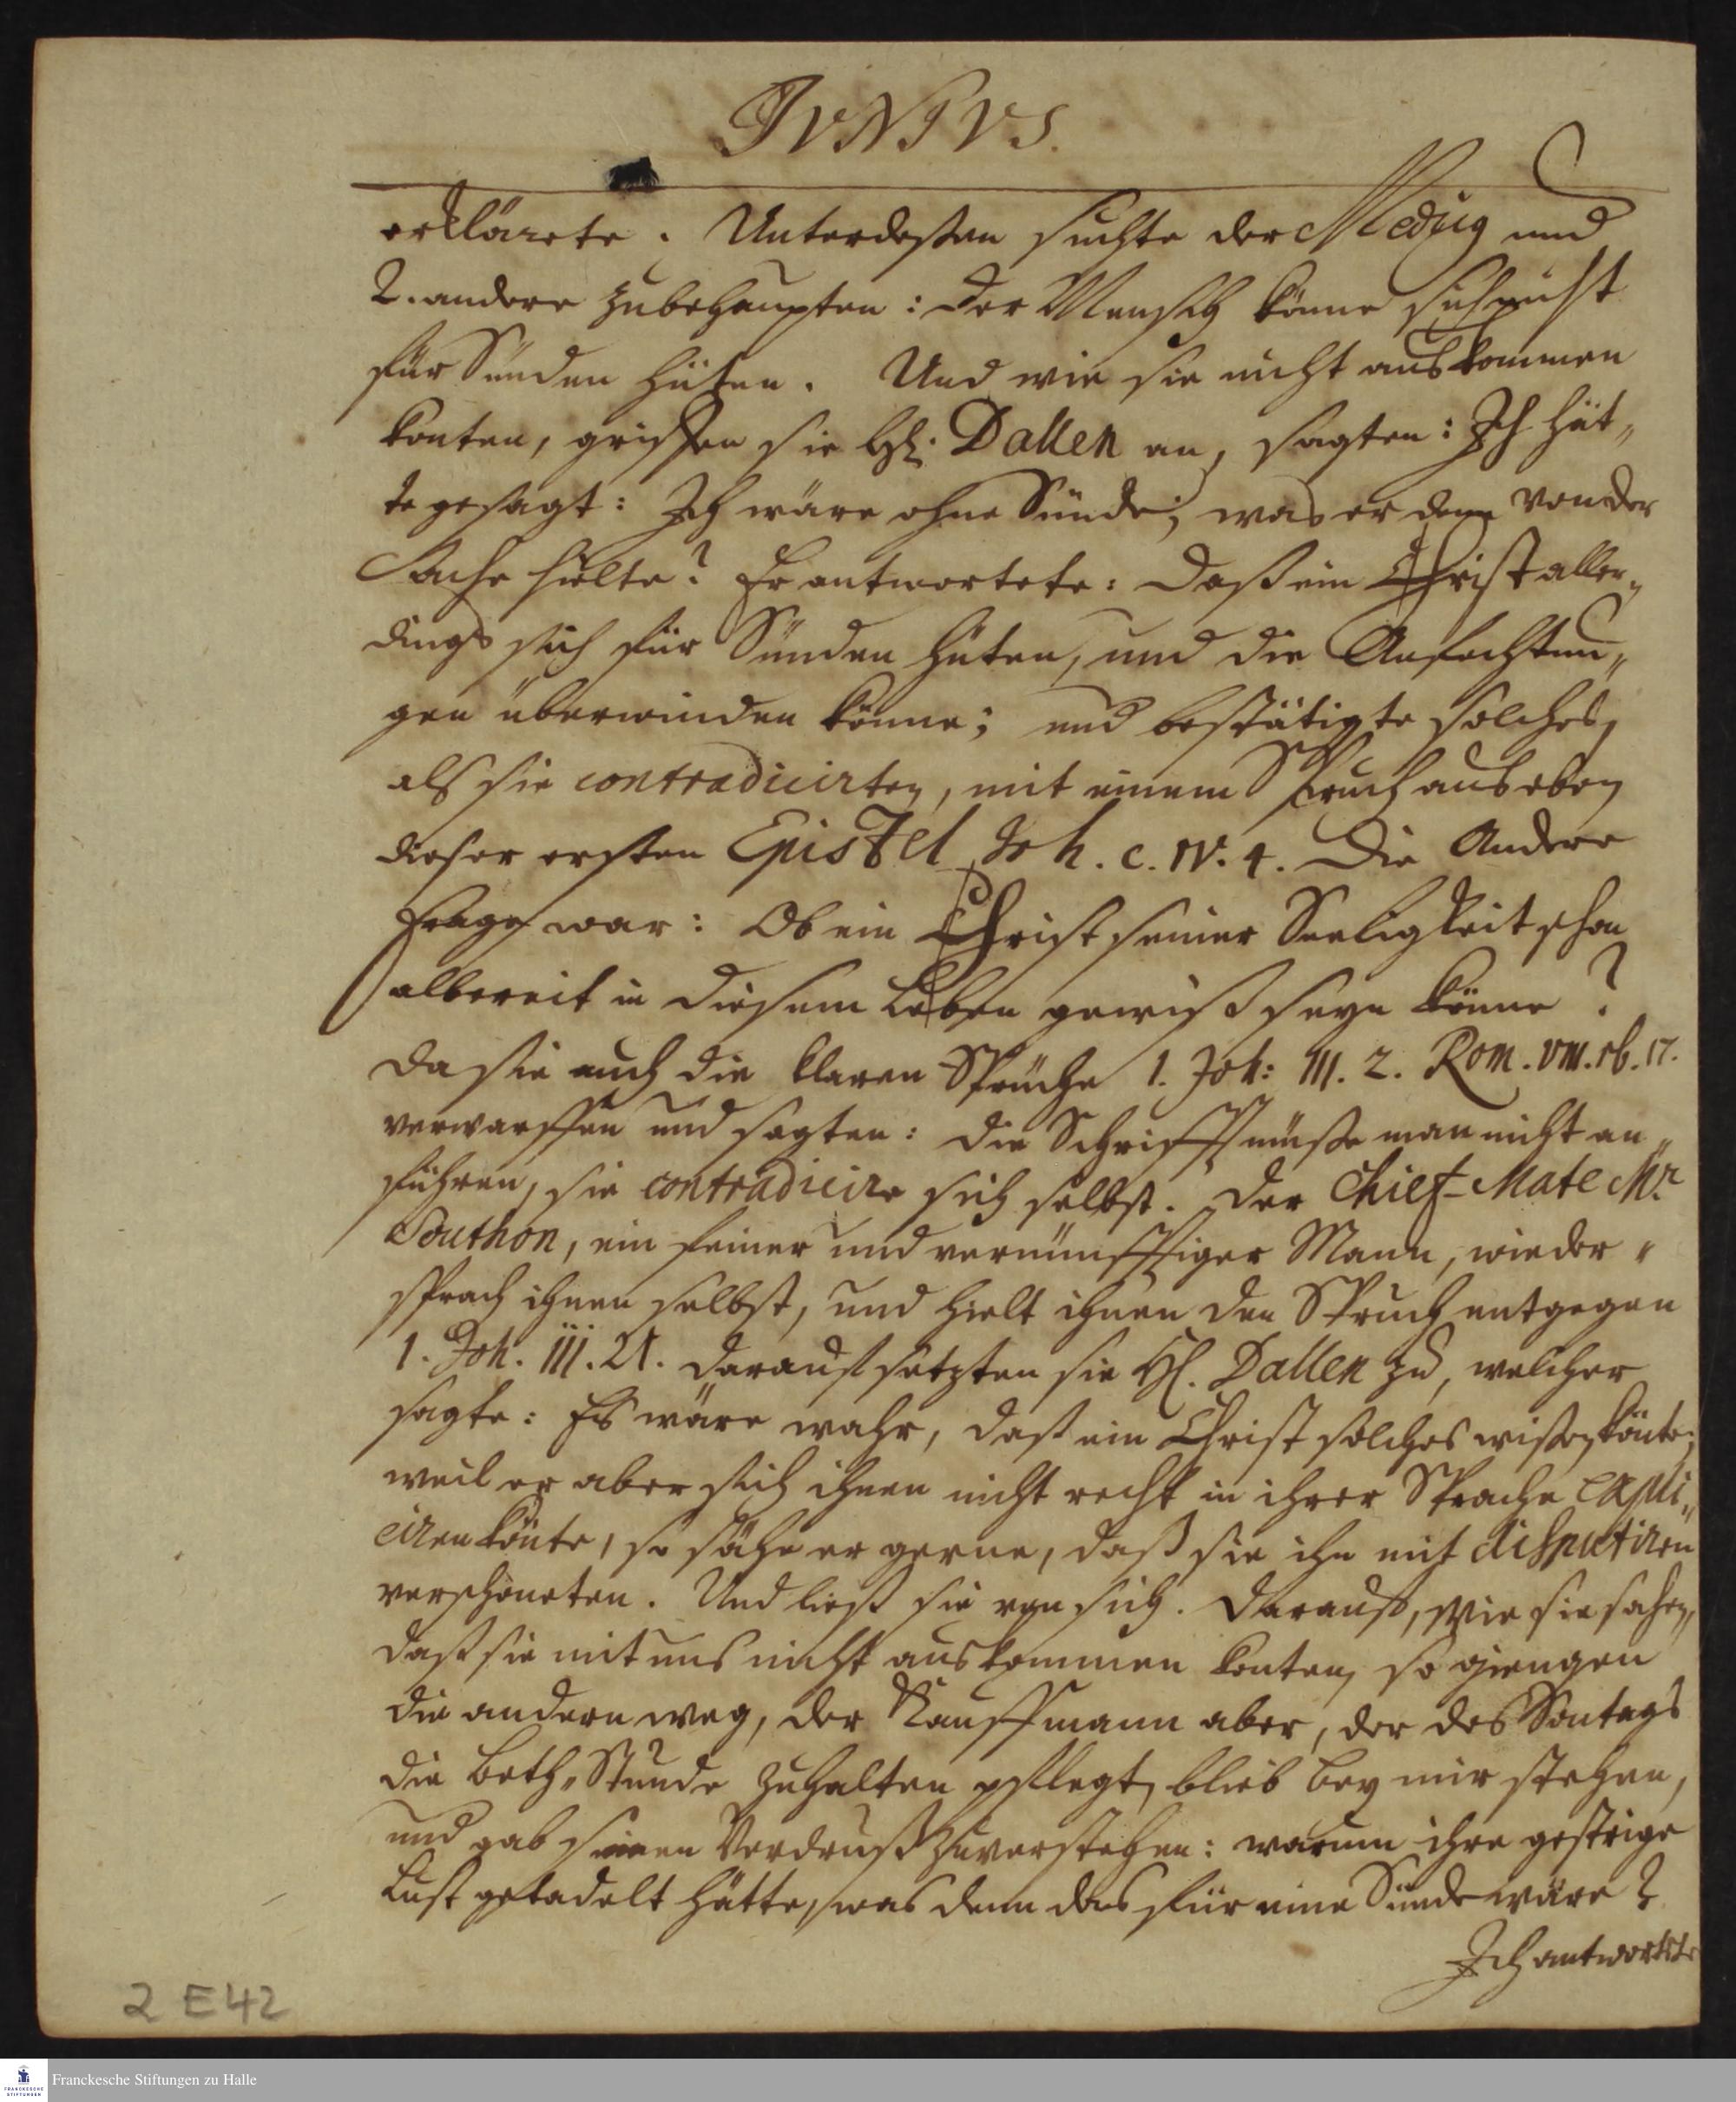 JVNIVS.
erklärete. Unterdeßen suchte der Medicg und
2. andere zubehaupten: der Mensch könne sich nicht
für Sünden hüten. Und wie sie nicht auskommen
konten, griffen sie H. Dallen an, sagten: Ich hät„
te gesagt: Ich wäre ohne Sünde, was er denn von der
Sache hielte? Er antwortete: daß ein Christ aller„
dings sich für Sünden hüten, und die Anfechtun„
gen überwinden könne; und bestätigte solches,
als sie contradicirten, mit einem Spruch aus eben
dieser ersten Epistel Joh. c. IV. 4. Die Andere
Frage war: Ob ein Christ seiner Seeligkeit schon
albereit in diesem Leben gewiß seyn könne?
da sie auch die klaren Sprüche 1. Joh: III. 2. Rom. VIII. 16. 17.
verwarffen und sagten: die Schrifft müße man nicht an„
führen, sie contradicire sich selbst. Der Chief-Mate Mr.
Southon, ein feiner und vernünfftiger Mann, wieder„
sprach ihnen selbst, und hielt ihnen den Spruch entgegen
1. Joh. iii. 21. darauf setzten sie H. Dallen zu, welcher
sagte: Es wäre wahr, daß ein Christ solches wißen könte;
weil er aber sich ihnen nicht recht in ihrer Sprache expli„
ciren könte, so sähe er gerne, daß sie ihn mit disputiren
verschoneten. Und ließ sie von sich. Darauf, wie sie sahen,
daß sie mit uns nicht auskommen konten, so giengen
die andern weg, der Kauffmann aber, der des Sontags
die Beth„Stunde zuhalten pflegt, blieb bey mir stehen,
und gab seinen Verdruß zuverstehen: warum ihre gestrige
Lust getadelt hätte, was denn das für eine Sünde wäre?
Ich antwortete
2 E42
FRANCKESCHE
STIFTUNGEN
Franckesche Stiftungen zu Halle